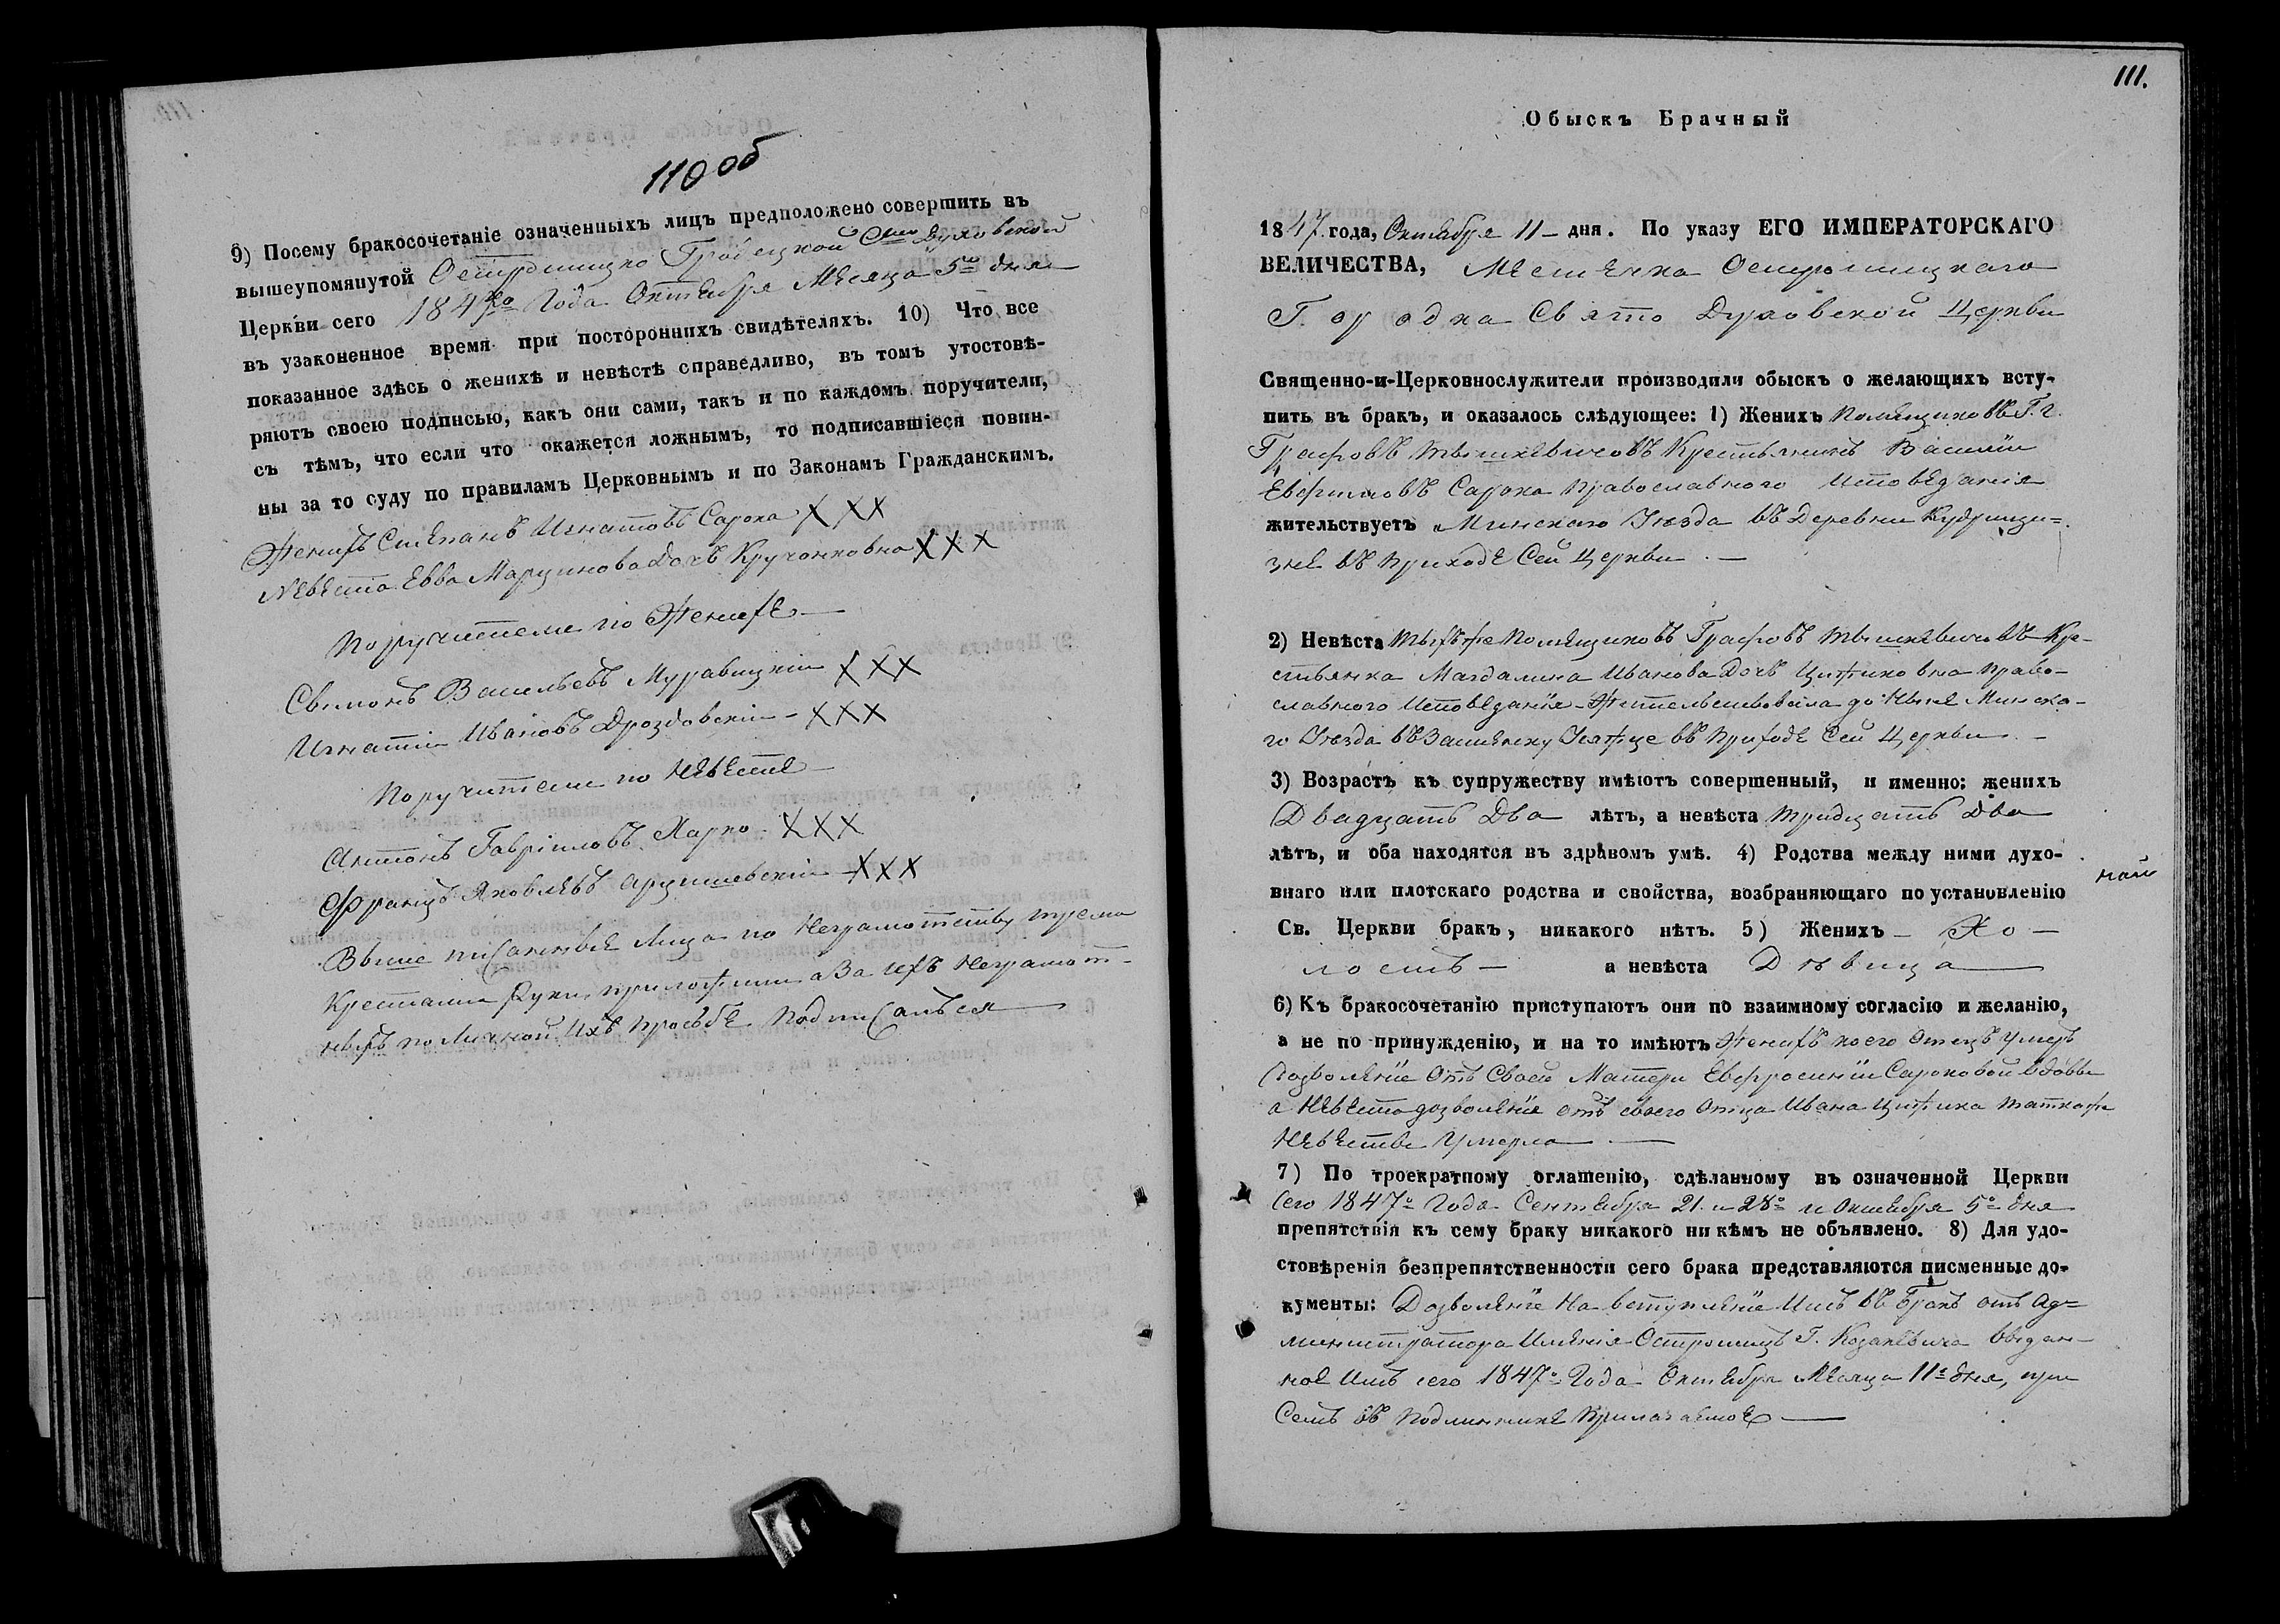 110 об
9) Посему бракосочетаніе означенныхъ лицъ предположено совершить въ
вышеупомянутой Острошицко Гродецкой Свято Духовской
Церкви сего 1847го Года Октября Месяца 5го дня
въ узаконенное время при постороннихъ свидѣтеляхъ. 10) Что все
показанное здѣсь о женихѣ и невѣстѣ справедливо, въ томъ утостовѣ-
ряютъ своею подписью, какъ они сами, такъ и по каждомъ поручители,
съ тѣмъ, что если что окажется ложнымъ, то подписавшіеся повин-
ны за то суду по правиламъ Церковнымъ и по Законамъ Гражданскимъ.
Женихъ Степанъ Игнатовъ Сарока XXX
Невеста Евва Марцинова Дочъ XXX
Поручители по Женихе
Свимонъ Васильевъ Муравицкій XXX
Игнатій Ивановъ Дроздовскій XXX
Поручители по Невесте
Антонъ Гавріиловъ Харко XXX
Францъ Яковлевъ Арцишевскій XXX
Выше писанные Лица по Неграмотству трема
Крестами Руки приложили а За ихъ Неграмот-
ныхъ по Личной Ихъ просьбе Подписался
111.
Обыскъ Брачный
1847 года, Октября 11 дня. По указу ЕГО ИМПЕРАТОРСКАГО
ВЕЛИЧЕСТВА, Местечка Острошицкаго
Городка Свято Духовской Церкви
Священно-и-Церковнослужители производили обыскъ о желающихъ всту-
пить въ бракъ, и оказалось слѣдующее: 1) Женихъ Помещиковъ Г. г.
Графовъ Тышкевичовъ Крестьянинъ Василій
Евфимовъ Сарока Православного Исповеданія
жительствуетъ Минскаго Уезда въ Деревни
въ Приходе Сей Церкви
2) Невѣста Тыхъже Помещиковъ Графовъ Тышкевичовъ Кре-
стьянка Магдалина Иванова Дочъ Право-
славного Исповеданія Жительствовала до Ныне Минска-
го Уезда въ въ Приходе Сей Церкви
3) Возрастъ къ супружеству имѣютъ совершенный, и именно: женихъ
Двадцать Два лѣтъ, а невѣста тридцать Два
лѣтъ, и оба находятся въ здравомъ умѣ. 4) Родства между ними духо-
внаго или плотскаго родства и свойства, возбраняющаго по установленію
Св. Церкви бракъ, никакого нѣтъ. 5) Женихъ Хо-
лостъ а невѣста Девица
6) Къ бракосочетанію приступаютъ они по взаимному согласію и желанію,
а не по принуждению, и на то имѣютъ Женихъ коего Отецъ Умеръ
Дозволеніе Отъ Своей Матери Евфросиніи Сароковой вдовы
а Невеста дозволеніе отъ своего Отца Ивана
Невесты Умерла
7) По троекратному оглашенію, сдѣланному въ означенной Церкви
Сего 1847го Года Сентября 21 и 28го и Октября 5го дня
препятствія къ сему браку никакого ни кѣмъ не объявлено. 8) Для удо-
стовѣренія безпрепятственности сего брака представляются писменные до-
кументы: Дозволеніе На вступленіе Имъ въ Бракъ отъ Ад-
министратора Именія Острошицъ Г. Козакевича выдан-
ное Имъ сего 1847го Года Октября Месяца 11го дня, при
Семъ въ Подлиннике Прилагаемое